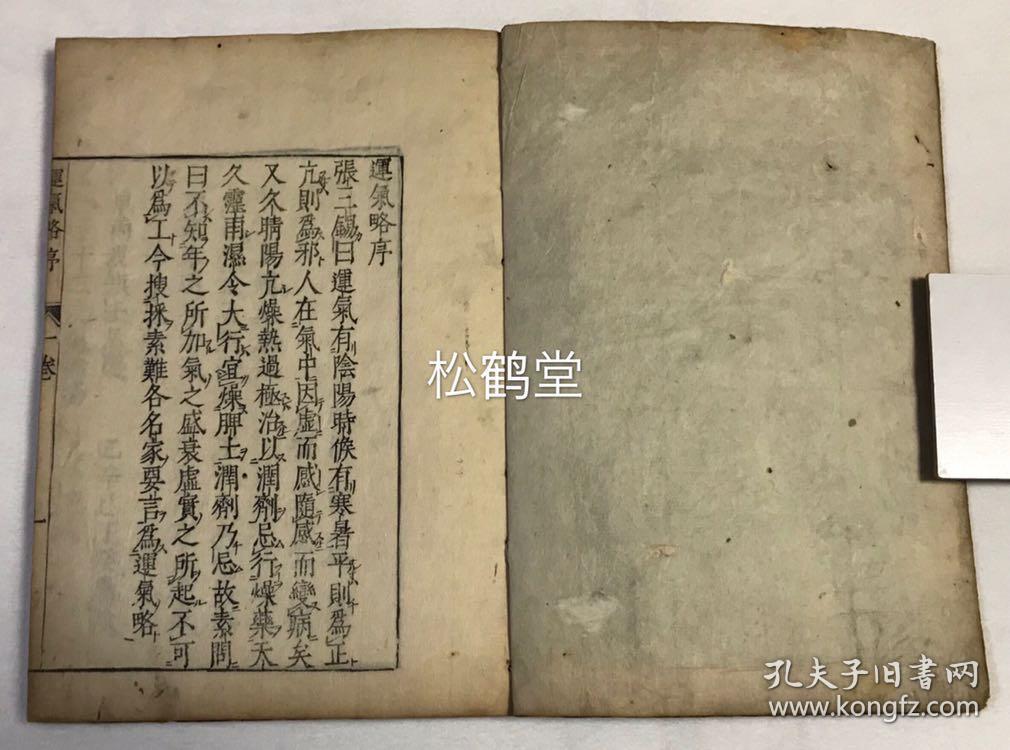 運氣略序
張三錫曰運氣有陰陽時候有寒暑平則爲正
亢則爲邪人在氣中因虛而感隨感而變病矣
又久晴陽亢燥熱過極治以潤劑忌行燥藥天
久霪雨濕令大行宜燥脾土潤劑乃忌故素問
曰不知年之所加氣之盛衰虛實之所起不可
以爲工今搜採素難各名家要言爲運氣略
運氣略序 一卷 一
松鹤堂
孔夫子旧书网
www.kongfz.com